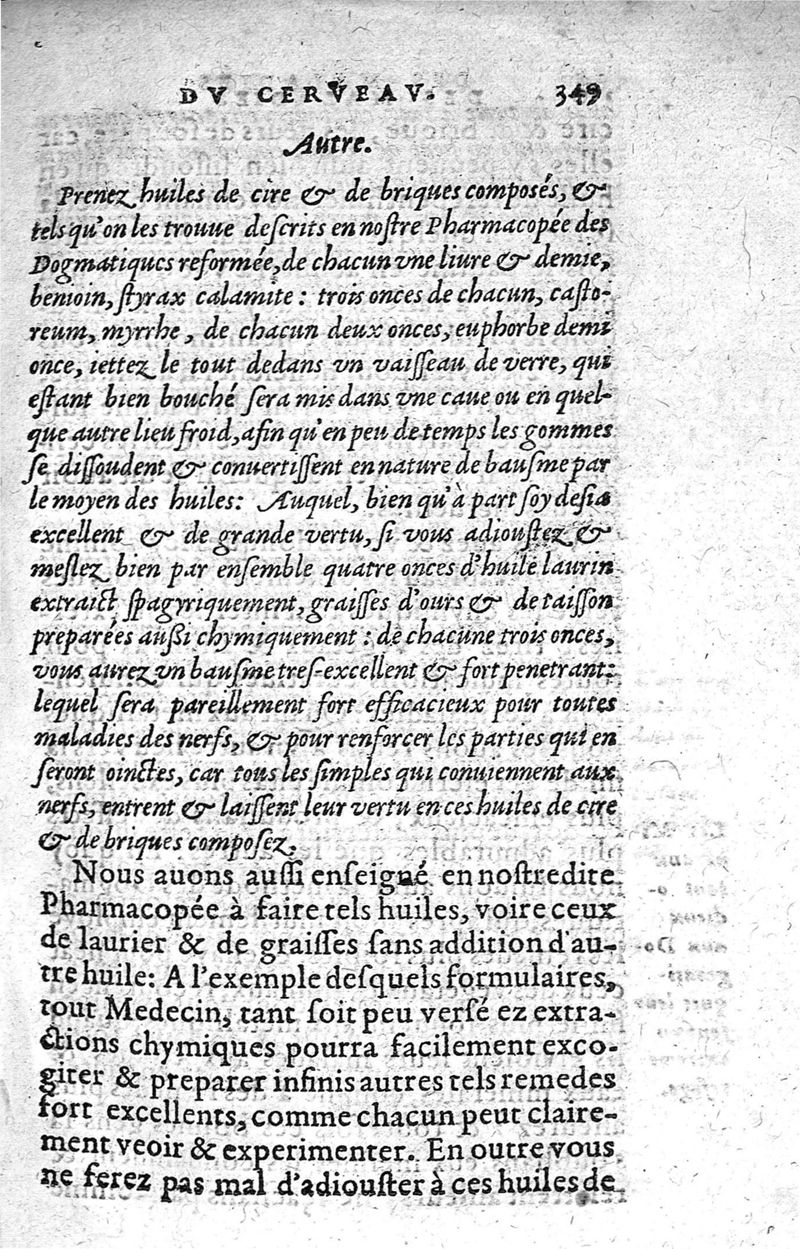 DV CERVEAV. 349
Autre.
Prenez huiles de cire & de briques composés, &
tels qu'on les trouue deſcrits en noſtre Pharmacopée des
Dogmatiques reformée, de chacun vne liure & demie,
benioin, ſtyrax calamite : trois onces de chacun, caſto-
reum, myrrhe, de chacun deux onces, euphorbe demi
once, iettez le tout dedans vn vaiſſeau de verre, qui
eſtant bien bouché ſera mis dans vne caue ou en quel-
que autre lieu froid, afin qu'en peu de temps les gommes
ſe diſſoudent & conuertiſſent en nature de bauſme par
le moyen des huiles: Auquel, bien qu'à part ſoy deſia
excellent & de grande vertu, ſi vous adiouſtez &
meſlez bien par enſemble quatre onces d'huile laurin
extraict ſpagyriquement, graiſſes d'ours & de taiſſon
preparées außi chymiquement : de chacune trois onces,
vous aurez vn bauſme tres-excellent & fort penetrant:
lequel ſera pareillement fort efficacieux pour toutes
maladies des nerfs, & pour renforcer les parties qui en
ſeront oinctes, car tous les ſimples qui conuiennent aux
nerfs, entrent & laiſſent leur vertu en ces huiles de cire
& de briques compoſez.
Nous auons auſſi enſeigné en noſtredite
Pharmacopée à faire tels huiles, voire ceux
de laurier & de graiſſes ſans addition d'au-
tre huile: A l'exemple deſquels formulaires,
tout Medecin, tant ſoit peu verſé ez extra-
ctions chymiques pourra facilement exco-
giter & preparer infinis autres tels remedes
fort excellents, comme chacun peut claire-
ment veoir & experimenter. En outre vous
ne ferez pas mal d'adiouſter à ces huiles de